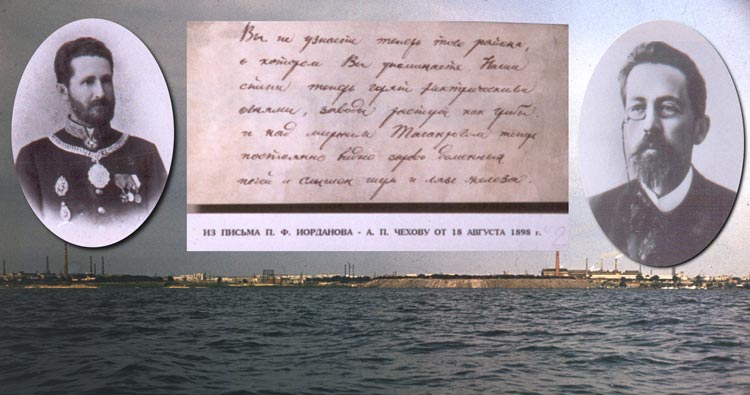 Вы не узнаете теперь того района,
о котором Вы упоминаете. Наша
степь теперь горит электрическими
огнями, заводы растут как грибы
и над мирным Таганрогом теперь
постоянно видно зарево доменных
печей и слышен шум и лязг железа.
ИЗ ПИСЬМА П. Ф. ИОРДАНОВА - А. П. ЧЕХОВУ ОТ 18 АВГУСТА 1898 г.